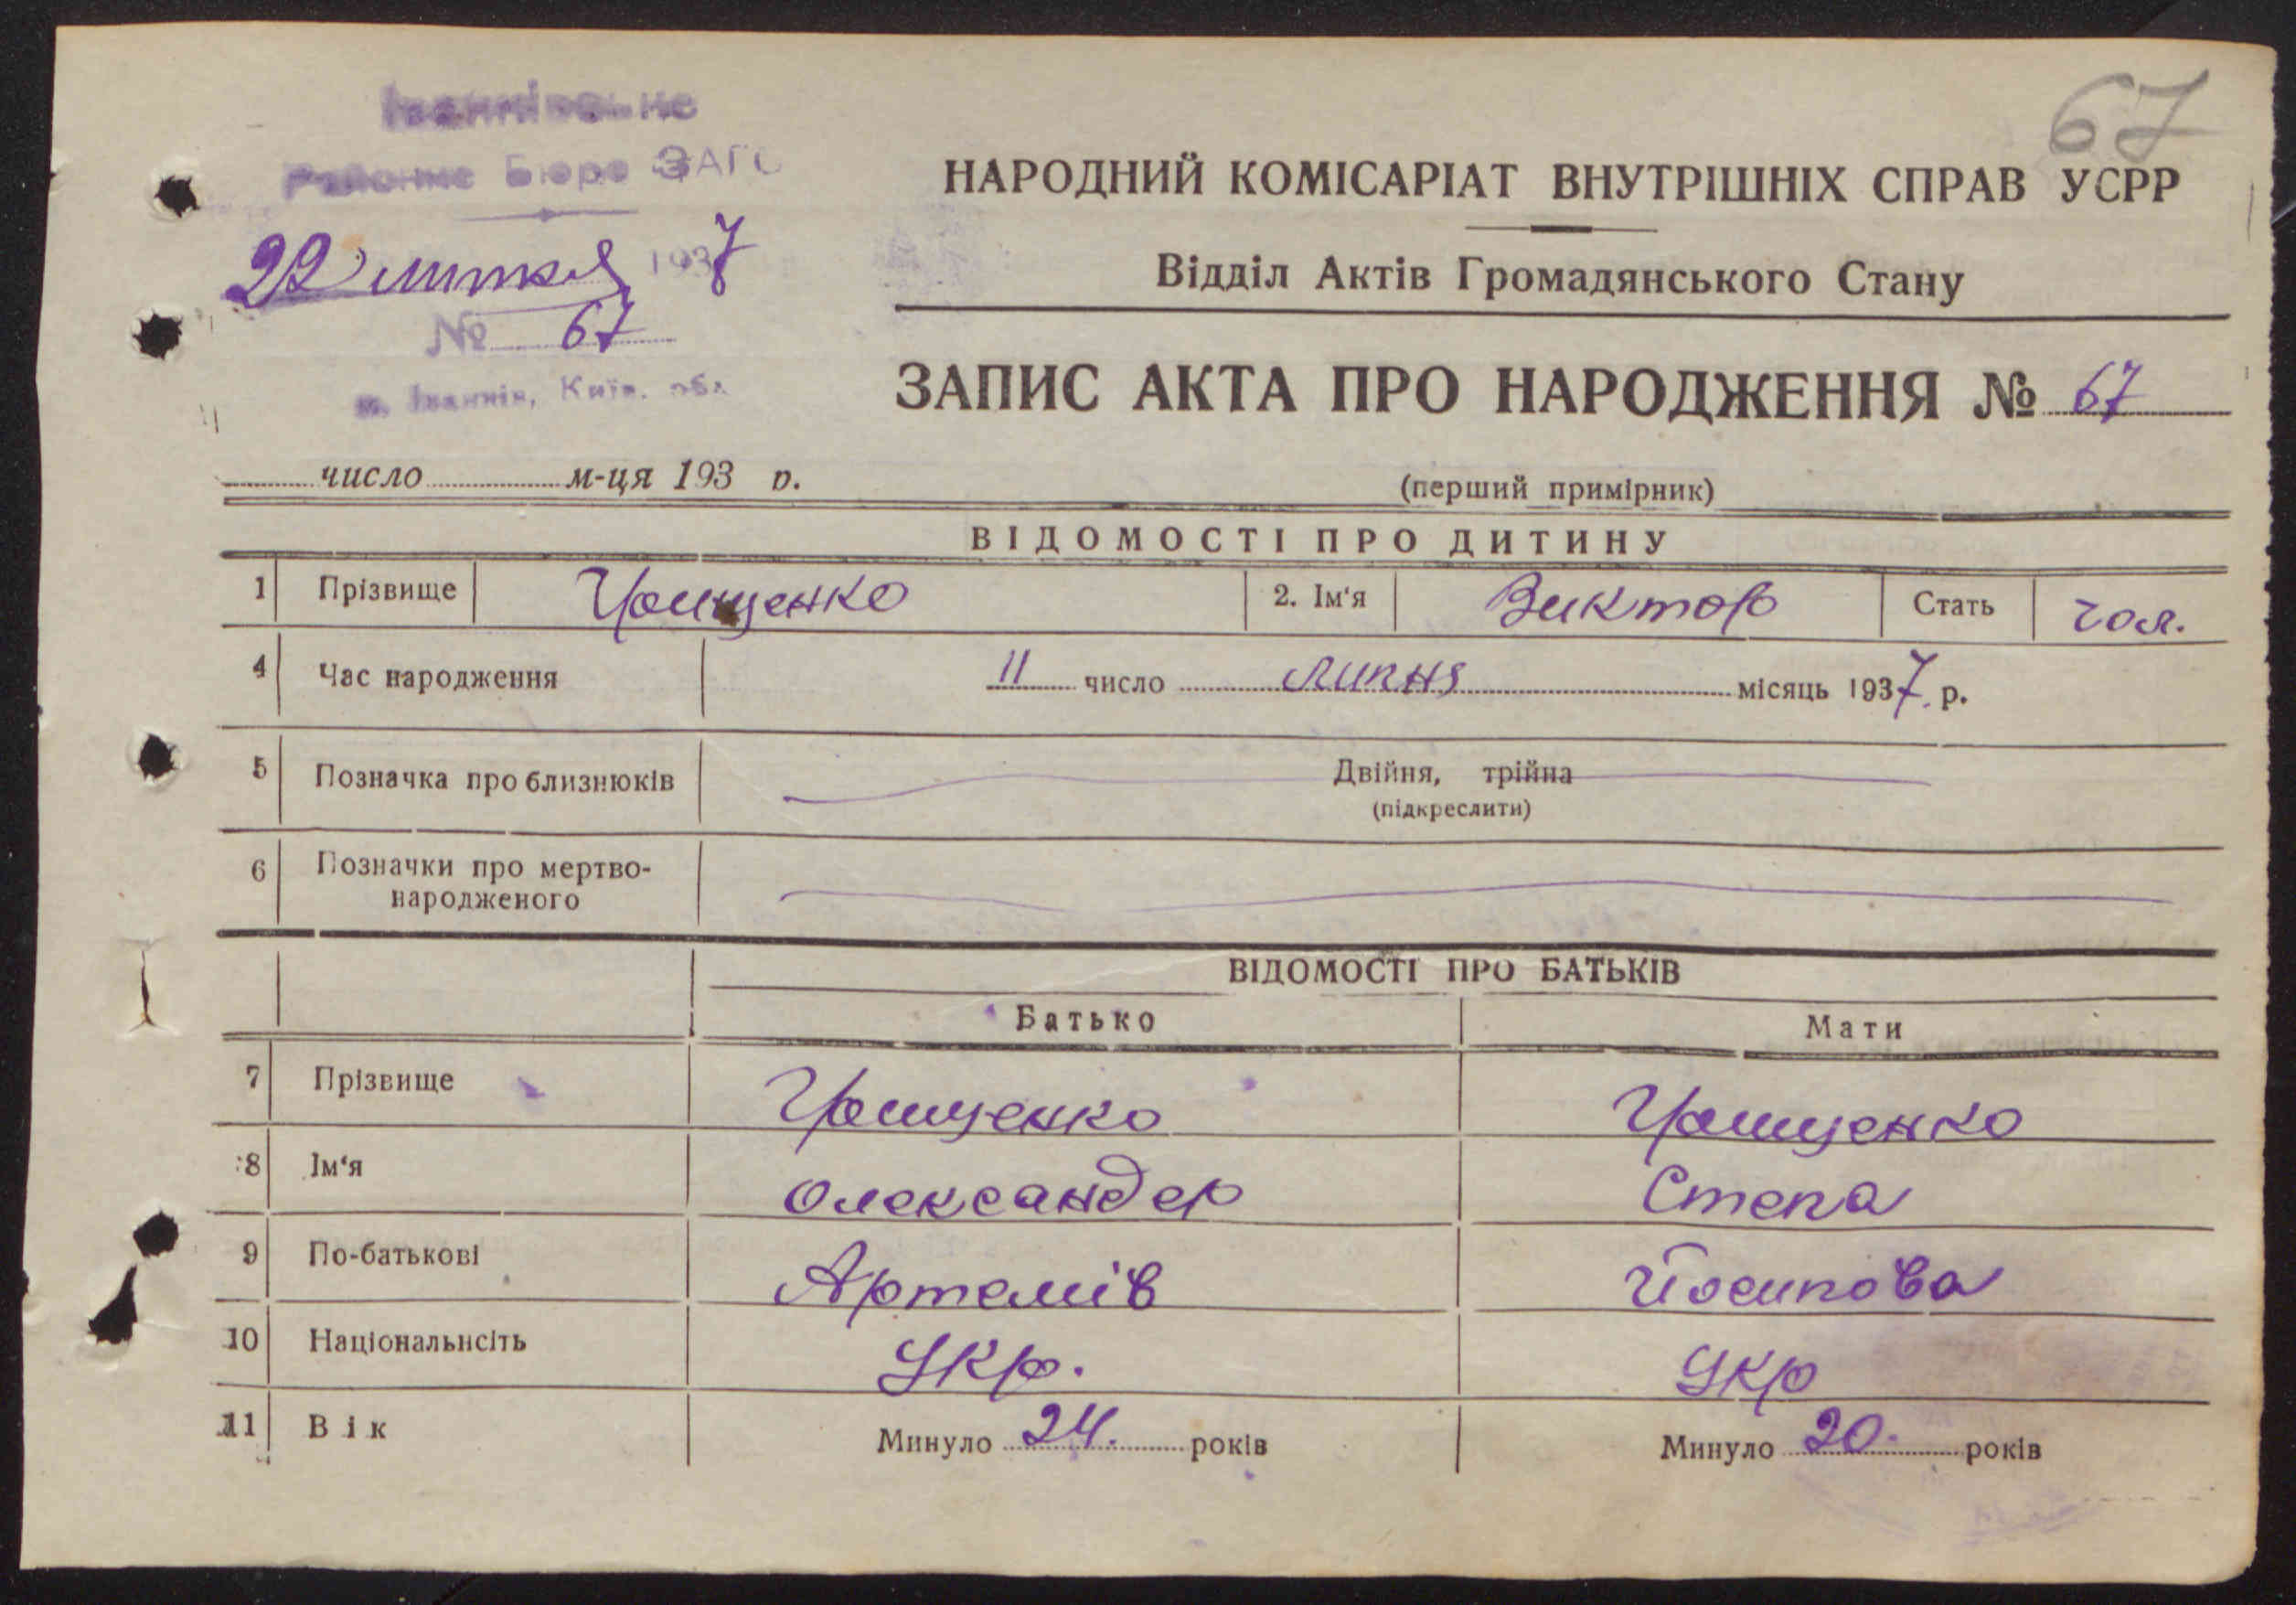 67
Районне Бюро ЗАГС
22 липня 1937
№ 67
м. Іванків, Київ. обл.
НАРОДНИЙ КОМІСАРІАТ ВНУТРІШНІХ СПРАВ УСРР
Відділ Актів Громадянського Стану
ЗАПИС АКТА ПРО НАРОДЖЕННЯ № 67
число м-ця 193 р.
(перший примірник)
ВІДОМОСТІ ПРО ДИТИНУ
1 Прізвище 2. Ім'я Виктор Стать чол.
4 Час народження 11 число липня місяць 1937. р.
5 Позначка про близнюків Двійня, трійна
(підкреслити)
6 Позначки про мертво-
народженого
ВІДОМОСТІ ПРО БАТЬКІВ
Батько Мати
7 Прізвище
8 Ім'я Олександер Степа
9 По-батькові Артемів Йосипова
10 Національнсіть Укр. Укр
11 Вік Минуло 24. років Минуло 20. років